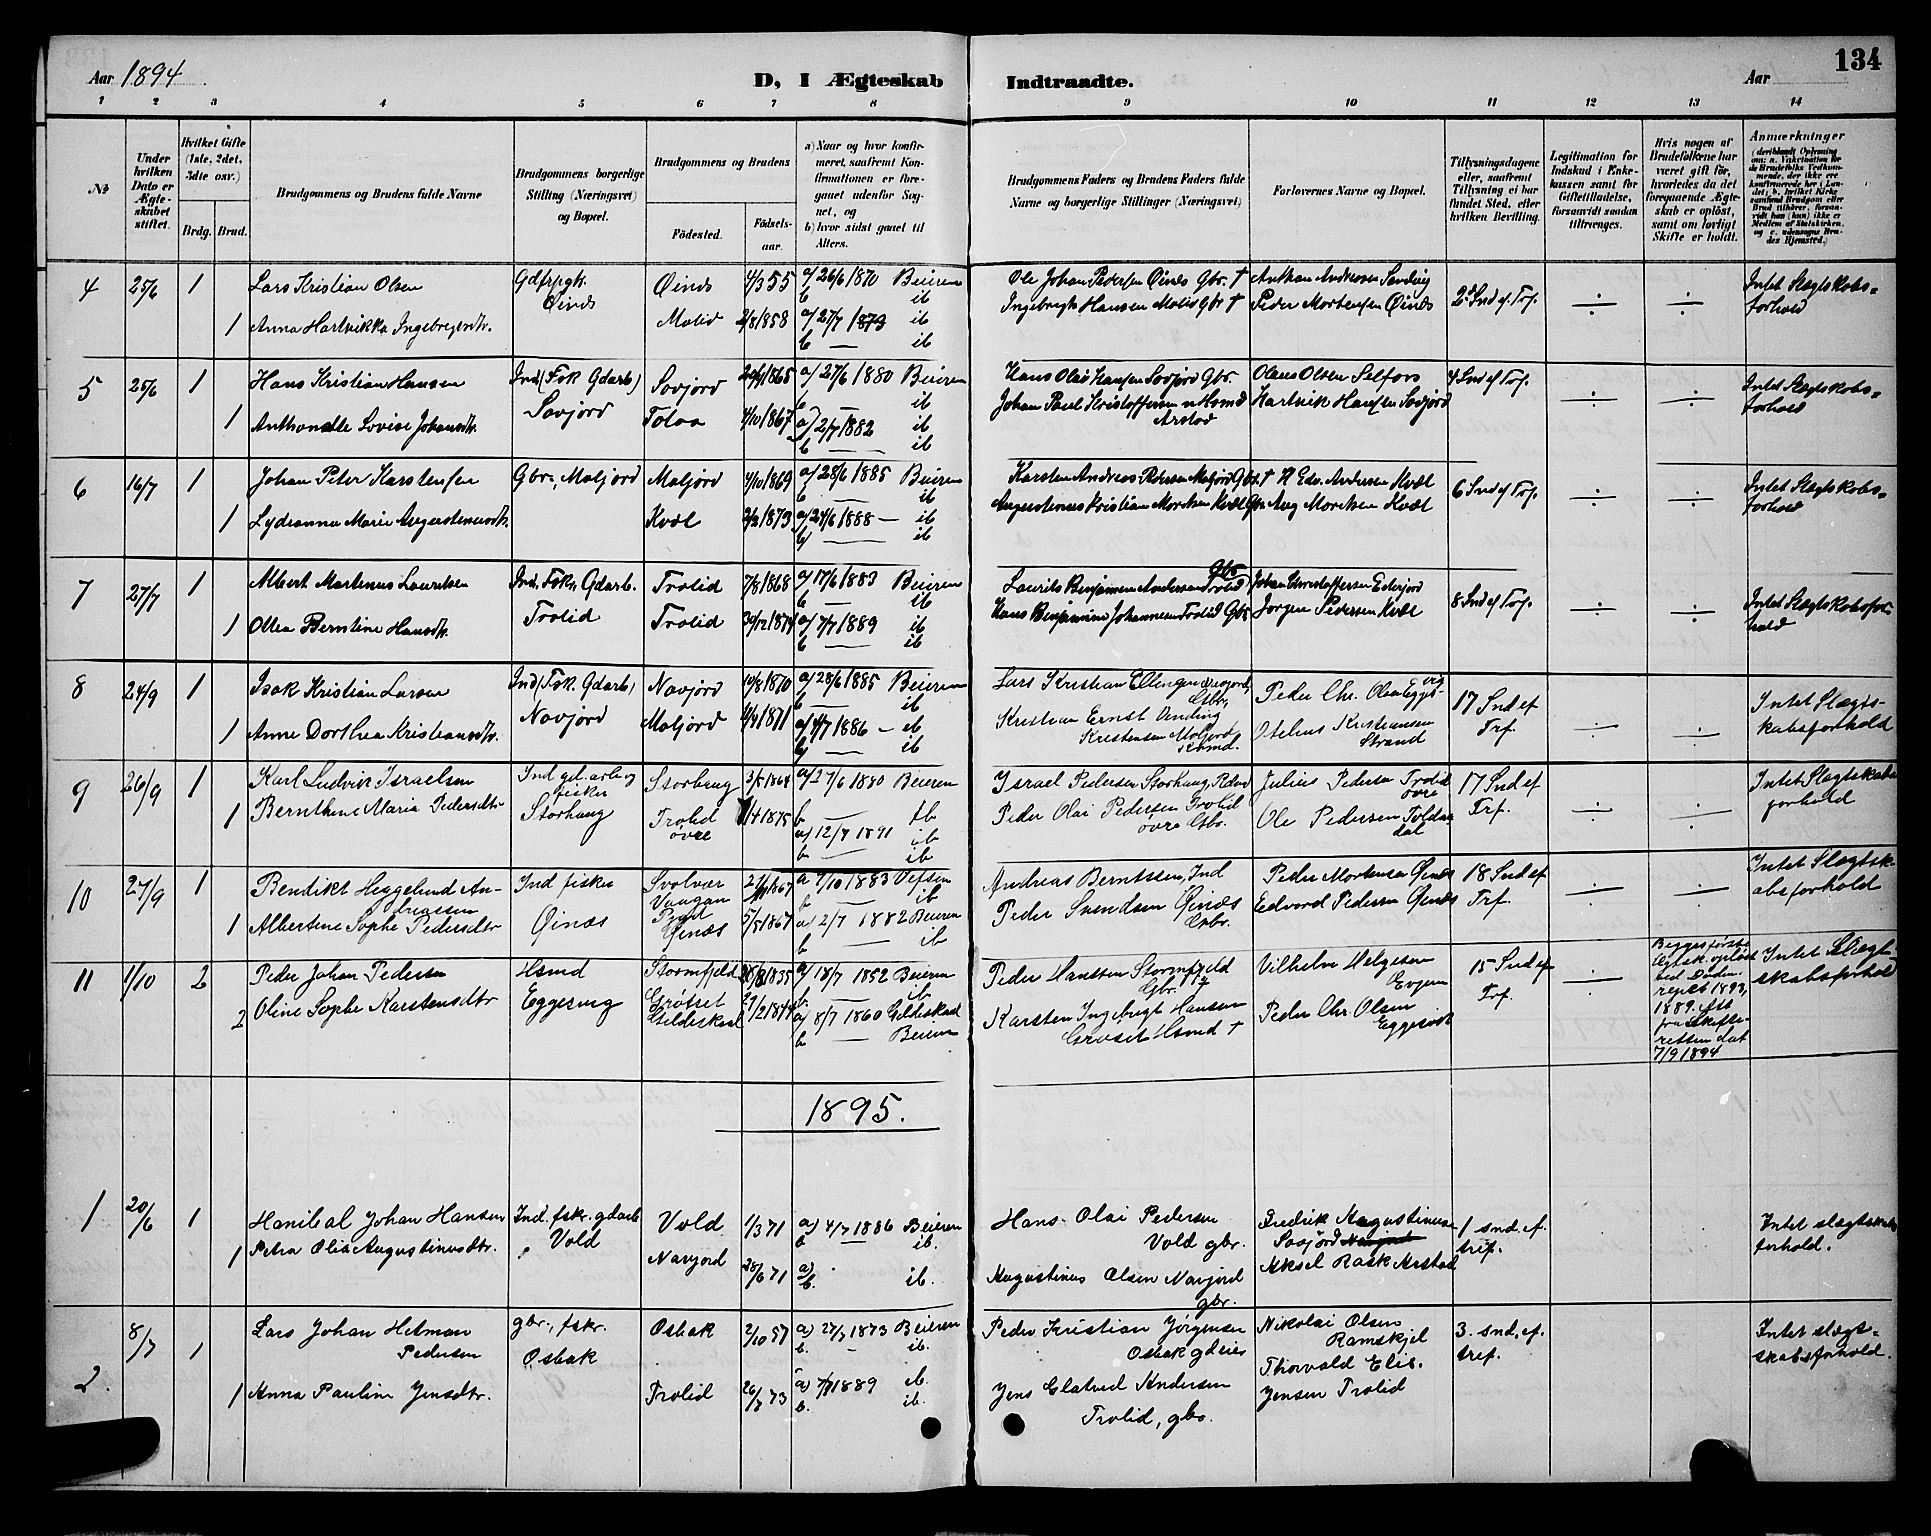 Aar 1894
D, I Ægteskab Indtraadte.
Aar
134
1 2 3 4 5 6 7 8 9 10 11 12 13 14
№
Under hvilken Dato er Ægteskabet stiftet.
Hvilket Gifte (1ste, 2det, 3die osv.)
Brdg. Brud.
Brudgommens og Brudens fulde Navne
Brudgommens borgerlige Stilling (Næringsvei) og Bopæl.
Brudgommens og Brudens
Fødested. Fødselsaar.
a) Naar og hvor konfirmeret, saafremt Konfirmationen er foregaaet udenfor Sognet, og
b) hvor sidst gaaet til Alters.
Brudgommens Faders og Brudens Faders fulde Navne og borgerlige Stillinger (Næringsvei)
Forlovernes Navne og Bopæl.
Tillysningsdagene eller, saafremt Tillysning ei har fundet Sted, efter hvilken Bevilling.
Legitimation for Indskud i Enkekassen samt for Giftetilladelse, forsaavidt saadan tiltrænges.
Hvis nogen af Brudefolkene har været gift før, hvorledes da det foregaaende Ægteskab er opløst, samt om lovligt Skifte er holdt.
Anmærkninger
4 25/6 1 Lars Kristian Olsen Øinæs 4/3 55 a) 26/6 1870 Beieren Ole Johan Pedersen Øinæs Gbr. † 2d Snd ef Trf. ÷ ÷ Intet Slægtskabs=
Øinæs b ib forhold
1 Anna Hartvikka Ingebregtsdtr. Molid 2/8 1858 a) 27/7 1873 ib Ingebregt Hansen Molid Gbr † Peder Mortensen Øinæs
b — ib
5 25/6 1 Hans Kristian Hansen Ind (Fsk Gdarb) Savjord 1865 a) 27/6 1880 Beieren Hans Olai Hansen Savjord Gbr. Olaus Olsen Selfors 4 Snd ef Trf. ÷ ÷ Intet Slægtskabs=
Savjord b — ib forhold
1 Lovise Johansdtr. Tolaa 4/10 1867 a) 2/7 1882 ib Johan Paul Kristoffersen Hsmd Hartvik Hansen Savjord
b — ib Arstad
6 16/7 1 Johan Peter Karstensen Gbr., Moljord Moljord 4/10 1869 a) 28/6 1885 Beieren Karsten Andreas Moljord Gbr. † Andersen Kvæl 6 Snd ef Trf. ÷ ÷ Intet Slægtskabs=
b — ib forhold
1 Lydianna Marie Augustinusdtr. Kvæl 2/2 1873 a) 24/6 1888 — ib Augustinus Kristian Mortsen Kvæl Gbr Aug Mortsen Kvæl
b) — ib
7 27/7 1 Albert Martinus Lauritsen Ind, Fsk, Gdarb. Trolid 7/8 1868 a) 17/6 1883 Beieren Laurits Benjaminsen Andersen Trolid Gbr 8 Snd ef Trf. ÷ ÷ Intet Slægtskabsfor-
Trolid b — ib hold
1 Olea Berntine Hansdtr. Trolid 30/12 1874 a) 7/7 1889 ib Hans Benjamin Johannesen Trolid Gbr Jørgen Pedersen Kvæl
b — ib
8 24/9 1 Isak Kristian Larsen Ind (Fsk. Gdarb) Navjord 10/8 1870 a) 28/6 1885 Beieren Lars Kristian Ellingsen Gbr. Peder Chr. Olsen Eggesvig 17 Snd ef Trf. ÷ ÷ Intet Slægts-
Navjord b — ib kabsforhold
1 Anne Dorthea Kristiansdtr. Moljord 1871 a) 4/7 1886 — ib Kristian Ernst Kristensen Moljord Hsmd. Otelius Kristiansen Strand
b) — ib
9 26/9 1 Karl Ludvik Israelsen Ind gd.arb og fisker Storhaug 3/5 1864 a) 27/6 1880 Beieren Israel Pedersen Storhaug Julius Pedersen Trolid øvre 17 Snd ef Trf. ÷ ÷ Intet Slægtskabs
Storhaug b — ib forhold
1 Bernthine Maria Pedersdtr Trolid øvre 1/4 1875 a) 12/7 1891 ib Peder Olai Pedersen Trolid øvre Gbr. Ole Pedersen
b — ib
10 27/9 1 Bendikt Heggelund Andreassen Ind fisker Svolvær Vaagan 1867 a 7/10 1883 Vefsen Andreas Berntssen, Ind Peder Mortensen Øinæs 18 Snd ef Trf. ÷ ÷ Intet Slægtsk-
Øinæs b — ib absforhold
1 Albertine Sophe Pedersdtr Øinæs 5/5 1867 a) 2/7 1882 Beieren Peder Svendsen Øinæs Gbr. Edvard Pedersen Øinæs
b — ib
11 1/10 2 Peder Johan Pedersen Hsmd Stormfjeld 1835 a) 18/7 1852 Beieren Peder Hanssen Stormfjeld Gbr. † Vilhelm Helgesen Evjen 15 Snd ef Trf. ÷ Intet Slægt-
Eggesvig b. — ib skabsforhold
2 Oline Sophe Karstensdtr Grøtset Gildeskaal 1844 a) 8/7 1860 Gildeskaal Karsten Ingebrigt Hansen Hsmd † Peder Chr. Olsen Eggesvik
b — Beieren
Begges første Ægtsk opløst ved Døden. resp 1893, 1889. Att fra Skifteretten dat 7/9 1894
1895.
1 20/6 1 Hanibal Johan Hansen Ind. fskr. gdarb Vold 1/3 71 a) 4/7 1886 Beieren Hans Olai Pedersen Fredrik Augustinusen 1 snd. ef. Intet slægtskabs
Vold b — ib. Vold gbr. Savjord tref. forhold.
1 Petra Olia Augustinusdtr. Navjord 28/6 71 a) b. ib. Augustinus Olsen Navjord Aksel Rask Arstad
gbr.
2. 8/7 1 Lars Johan Hetman gbr., fskr. Osbak 2/10 57 a) 27/7 1873 Beieren Peder Kristian Jørgensen Nikolai Olsen 3. snd. ef. Intet slægt=
Pedersen Osbak b. — ib. Osbak gdeier Ramskjel tref. skabsforhold.
1 Anna Pauline Jensdtr. Trolid 26/7 73 a) 7/7 1889 ib. Jens Andersen Thorvald Elis.
b. ib. Trolid, gbr. Jensen Trolid